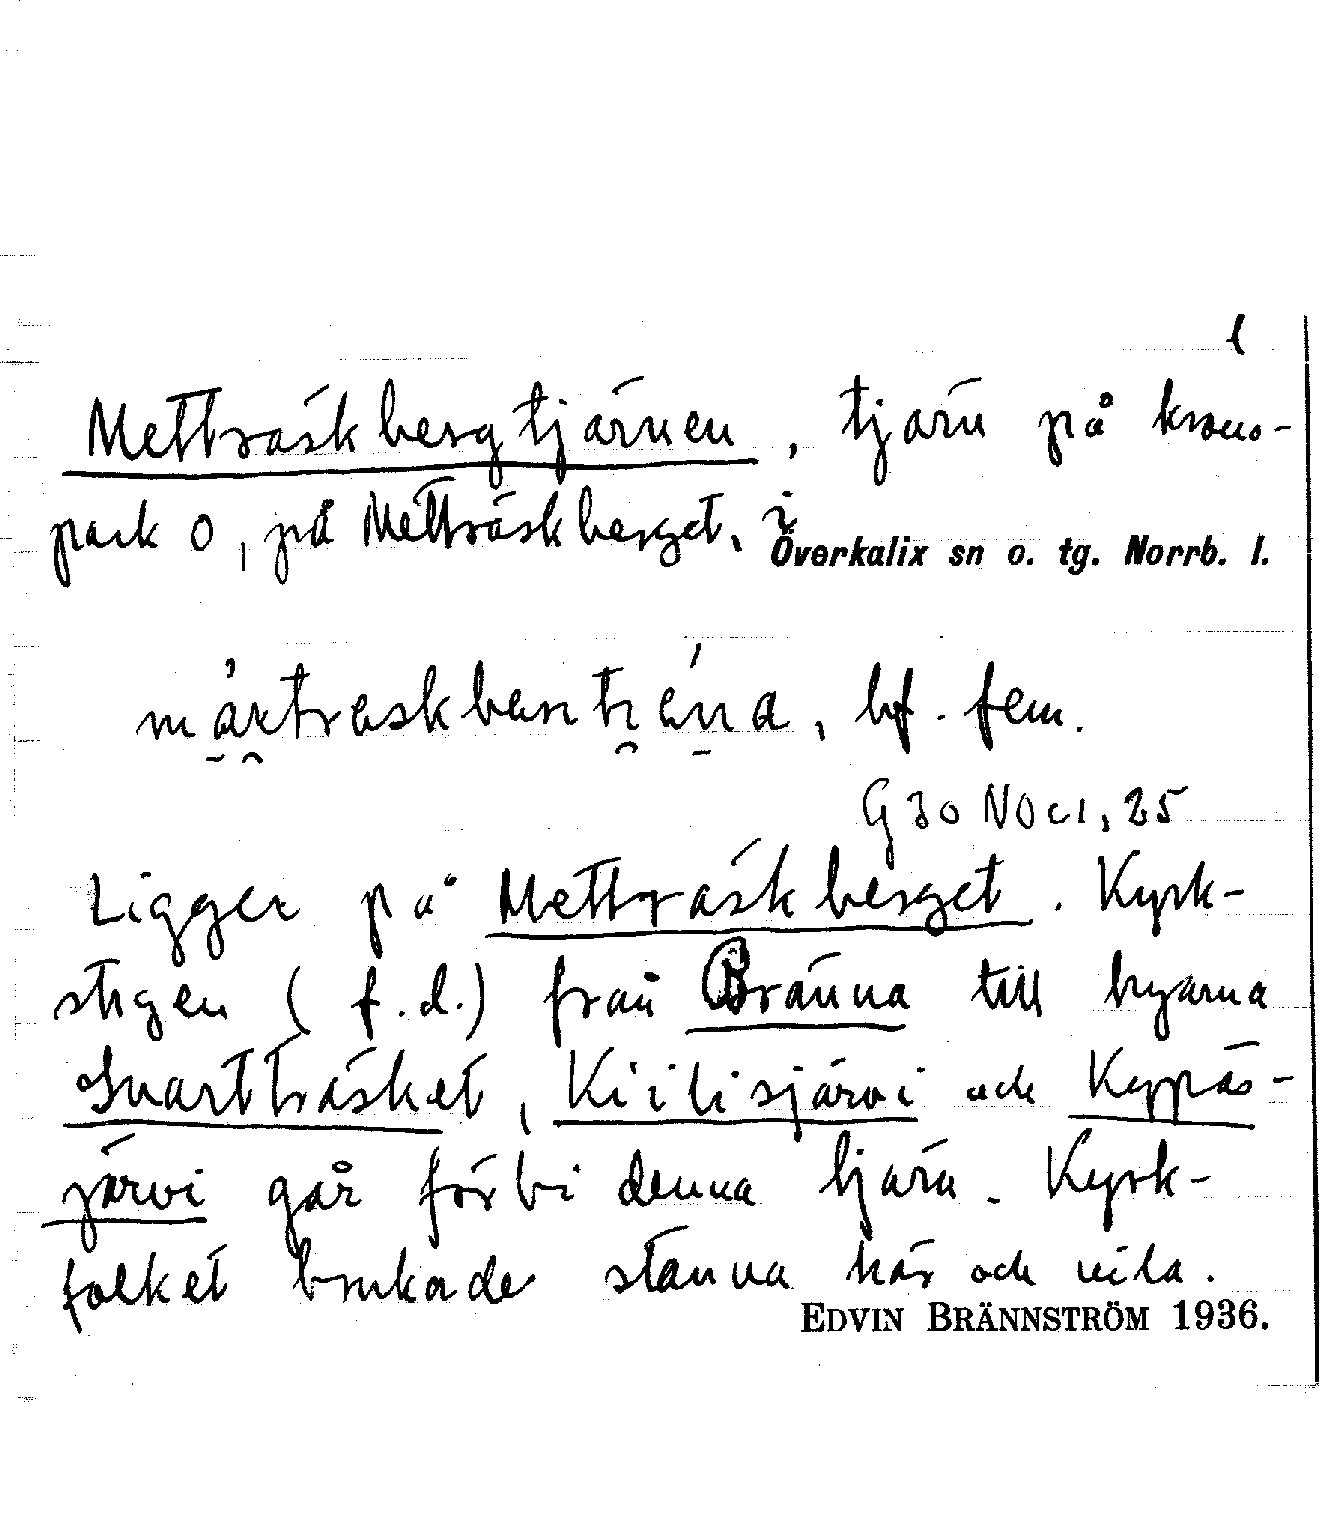 Metträskbergtjärnen, tjärn på krono-
park O, på Metträskberget, i
Överkalix sn o. tg. Norrb. l.
bf. fem.
G 30 NO c1, 25
Ligger på Metträskberget. Kyrk-
stigen (f.d.) från Bränna till byarna
Svartträsket, Kiilisjärvi och Kyppäs-
järvi går förbi denna tjärn. Kyrk-
folket brukade stanna här och vila.
EDVIN BRÄNNSTRÖM 1936.